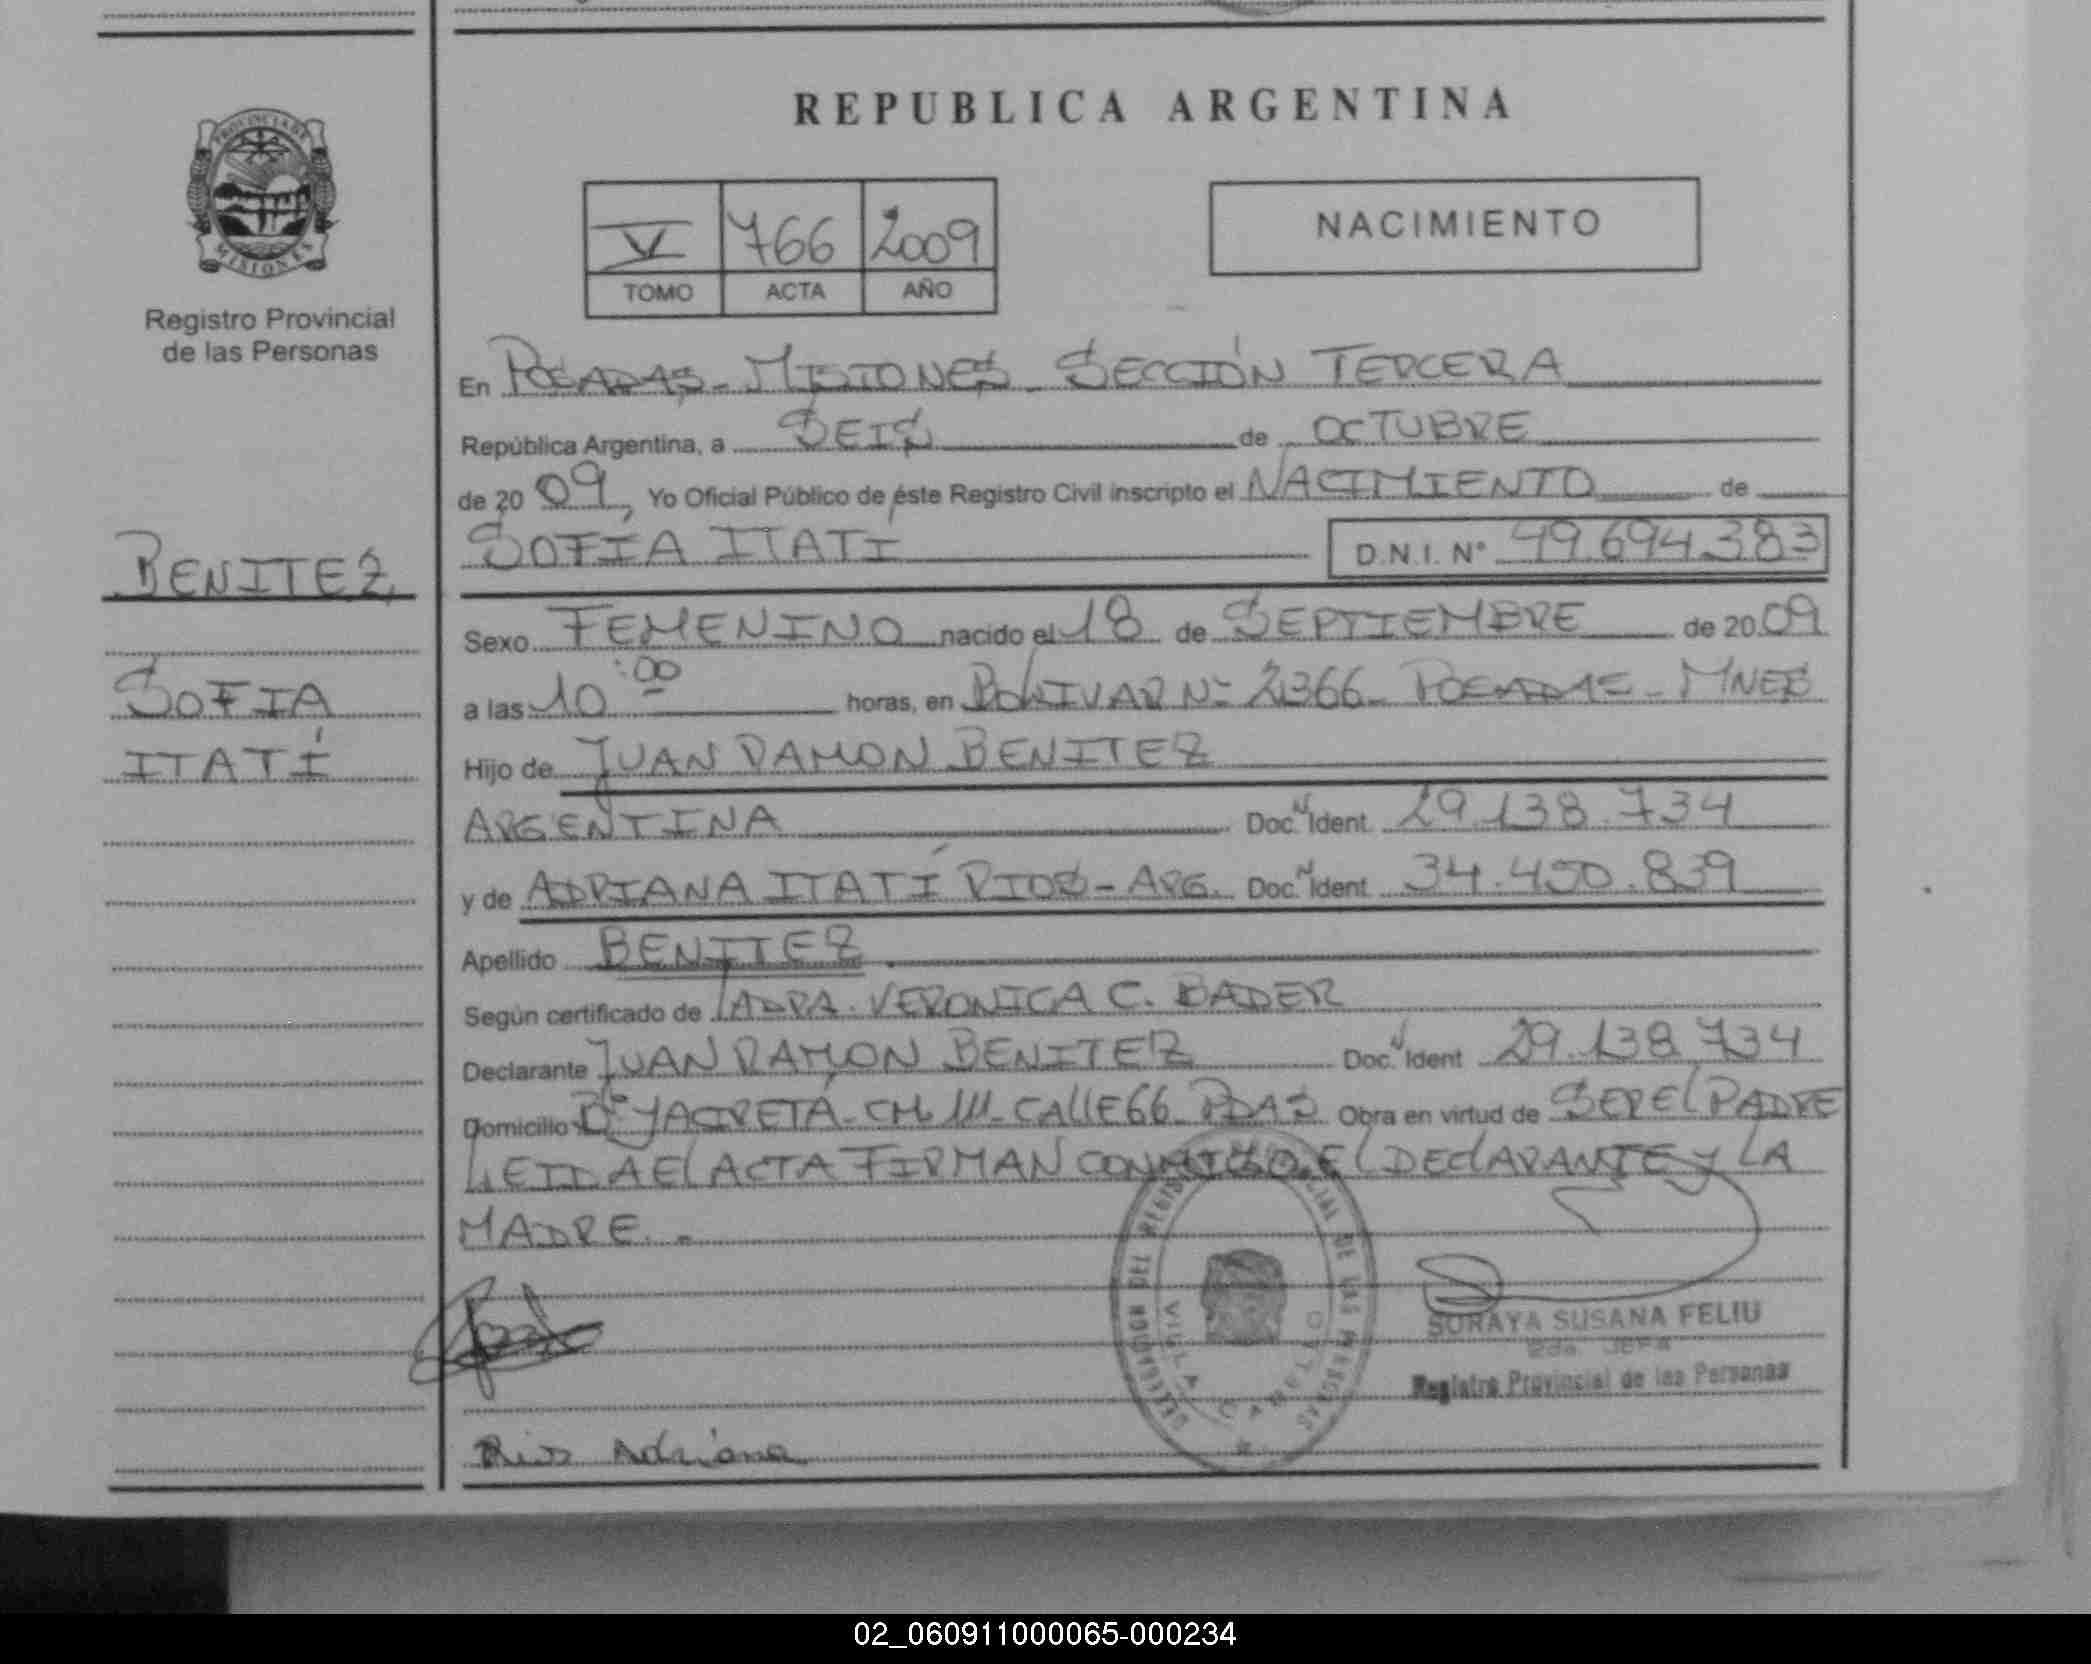 REPUBLICA ARGENTINA
PROVINCIA DE
MISIONES
Registro Provincial
de las Personas
V 766 2009
TOMO ACTA AÑO
NACIMIENTO
En POSADAS - MISIONES - SECCIÓN TERCERA
República Argentina, a SEIS de OCTUBRE
de 20 09, Yo Oficial Público de éste Registro Civil inscripto el NACIMIENTO de
SOFÍA ITATÍ D.N.I. N° 49.694.383
BENITEZ,
SOFIA
ITATÍ
Sexo FEMENINO nacido el 18 de SEPTIEMBRE de 20 09
a las 10:00 horas, en BOLIVAR Nº 2366 - POSADAS - MNES
Hijo de JUAN RAMON BENITEZ
ARGENTINA Doc. N Ident. 29.138.734
y de ADRIANA ITATÍ RIOS - ARG. Doc. N Ident. 34.450.839
Apellido BENITEZ.
Según certificado de LA DRA. VERONICA C. BADER
Declarante JUAN RAMON BENITEZ Doc. N Ident. 29.138.734
Domicilio Bº YACIRETÁ - CH. 111 - CALLE 66 PDAS Obra en virtud de SER El PADRE
LEIDA El ACTA FIRMAN CONMIGO El DEClARANTE y LA
MADRE. -
SORAYA SUSANA FELIU
2da. JEFA
Registro Provincial de las Personas
DELEGACION DEL REGISTRO PROVINCIAL DE LAS PERSONAS
VILLA CABELLO
Rios Adriana
02_060911000065-000234